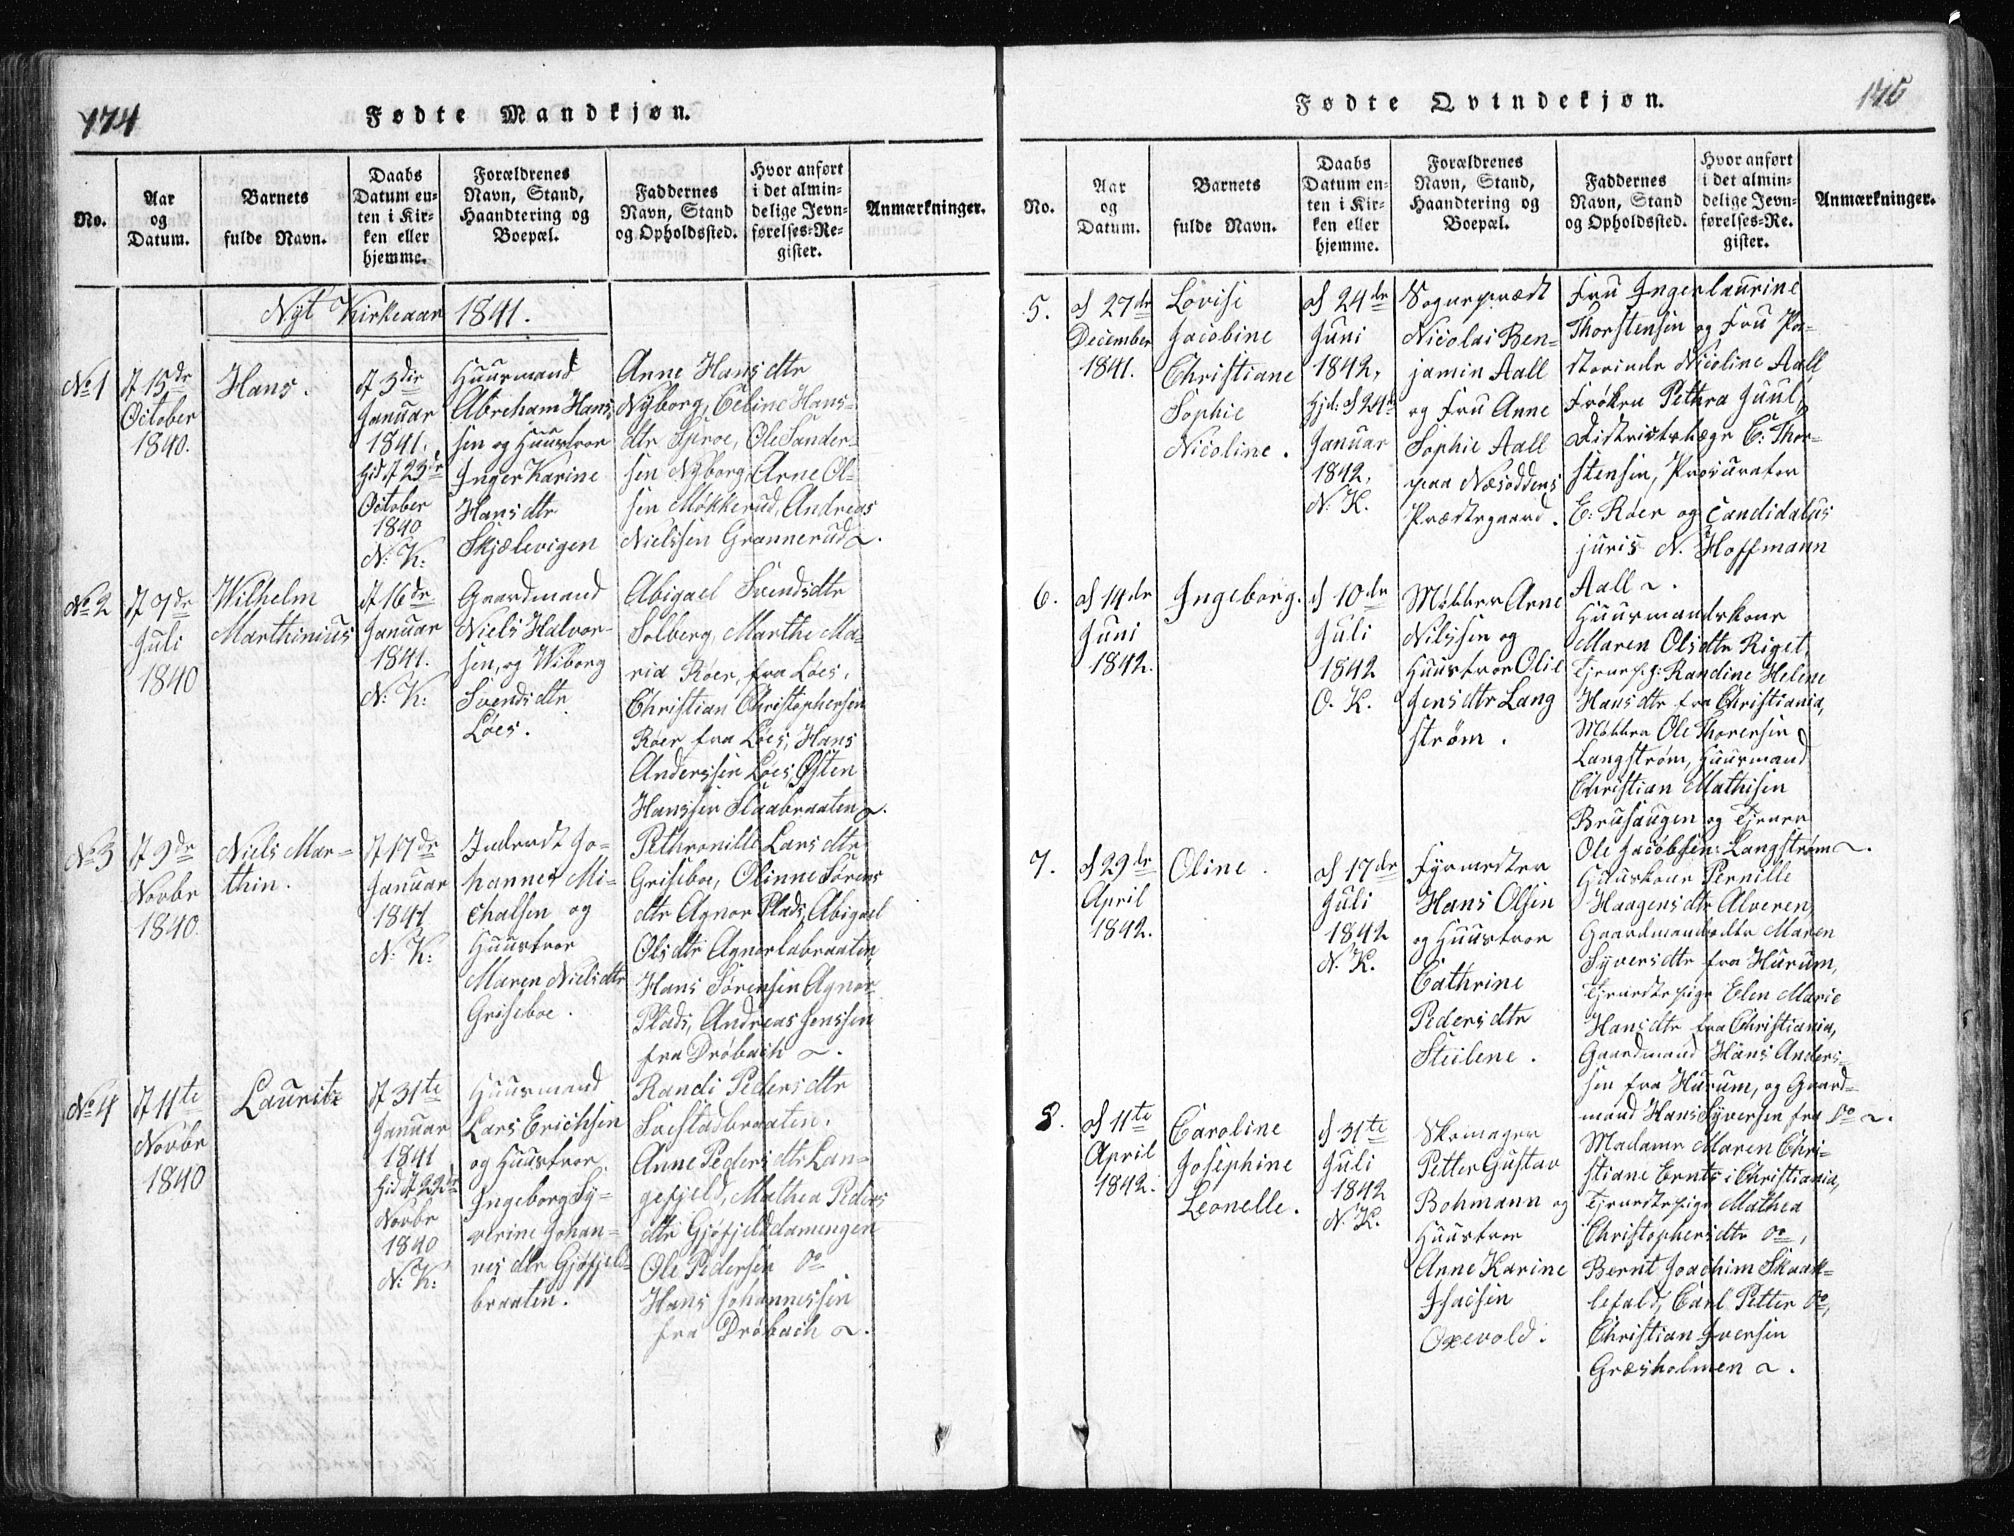 174
Fødte Mandkjøn.
No.
Aar
og
Datum.
Barnets
fulde Navn.
Daabs
Datum en-
ten i Kir-
ken eller
hjemme.
Forældrenes
Navn, Stand,
Haandtering og
Boepæl.
Faddernes
Navn, Stand
og Opholdssted.
Hvor anført
i det almin-
delige Jevn-
førelses-Re-
gister.
Anmærkninger.
Nyt Kirkeaar 1841.
No 1
d 15de
October
1840.
Hans.
d 3die
Januar
1841.
Hjd d 23de
October
1840
N: K:
Huusmand
Abreham Hans-
sen og Huustroe
Inger Karine
Hansdtr
Skjælevigen
Anne Hansdtr
Nyborg, Celine Hans-
dtr Sproe, Ole Sander-
sen Nyborg, Arne Ol-
sen Møkkerud, Andreas
Nielssen Grannerud
No 2
d 7de
Juli
1840
Wilhelm
Marthinius
d 16de
Januar
1841.
N: K:
Gaardmand
Niels Halvor-
sen, og Wiborg
Svendsdtr
Løes.
Abigael Svendsdtr
Solberg, Marthe Ma-
ria Røer, fra Løes,
Christian Christophersen
Røer fra Løes, Hans
Anderssen Løes, Østen
Hanssen Flaabraaten
No 3
d 9de
Novbr
1840.
Niels Mar-
thin.
d 17de
Januar
1841
N: K:
Inderst Jo-
hannes Mi-
chalsen og
Huustroe
Maren Nielsdtr
Griseboe.
Pethronille Larsdtr
Griseboe, Olinne Sørens
dtr Agnor Plads, Abigael
Olsdtr Agnorlabraaten,
Hans Sørensen Agnor
Plads, Andreas Jenssen
fra Drøbach
No 4
d 11te
Novbr
1840
Lauritz
d 31te
Januar
1841
Hjd d 22de
Novbr
1840
N: K:
Huusmand
Lars Erichsen
og Huustroe
Ingeborg Sy-
verine Johan-
nesdtr Gjøfjeld-
braaten.
Randi Pedersdtr
Soestadbraaten.
Anne Pedersdtr Lan-
gefjeld, Mathea Peders
dtr Gjøfjelddamengen
Ole Pedersen Do
Hans Johannessen
fra Drøbach
Fødte Qvindekjøn.
No.
Aar
og
Datum.
Barnets
fulde Navn.
Daabs
Datum en-
ten i Kir-
ken eller
hjemme.
Forældrenes
Navn, Stand,
Haandtering og
Boepæl.
Faddernes
Navn, Stand
og Opholdssted.
Hvor anført
i det almin-
delige Jevn-
førelses-Re-
gister.
Anmærkninger.
5.
d 27de
December
1841.
Lovise
Jacobine
Christiane
Sophie
Nicoline.
d 24de
Juni
1842,
Hjd: d 24de
Januar
1842,
N. K.
Sognepræst
Nicolai Ben-
jamin Aall
og Fru Anne
Sophie Aall
paa Næsoddens
Præstegaard.
Fru Ingerlaurine
Thorstensen og Fru Pa-
storinde Nicoline Aall
Frøken Pethra Juul,
Distriktslæge E: Thor-
stensen, Procurator
E: Røer og Candidatus
juris N. Hoffmann
Aall
6.
d 14de
Juni
1842.
Ingeborg.
d 10de
Juli
1842
O. K.
Møller Arne
Nilssen og
Huustroe Olie
Jensdtr Lang
strøm.
Huusmandskone
Maren Olsdtr Riget,
Tjenepig: Randine Helene
Hansdtr fra Christiania,
Møller Ole Thoresen
Langstrøm, Huusmand
Christian Mathisen
Bruhaugen og Tjener
Ole Jacobsen: Langstrøm
7.
d 29de
April
1842.
Oline.
d 17de
Juli
1842
N. K.
Fyrmester
Hans Olsen
og Huustroe
Cathrine
Pedersdtr
Steilene.
Huuskone Pernille
Haagensdtr Alveren,
Gaardmandsdtr Maren
Syversdtr fra Hurum,
Tjenestepige Elen Marie
Hansdtr fra Christiania,
Gaardmand Hans Anders-
sen fra Hurum, og Gaard-
mand Hans Syversen fra Do
8.
d 11te
April
1842.
Caroline
Josephine
Leonelle.
d 31te
Juli
1842
N. K.
Skomager
Petter Gustav
Bohmann og
Huustroe
Anne Karine
Isacsen
Oxevold.
Madame Maren Chri-
stiane Ernts i Christiania,
Tjenestepige Mathea
Christophersdtr Do,
Bernt Joachim Skaal-
lefald, Carl Petter Do,
Christian Iversen
Græsholmen